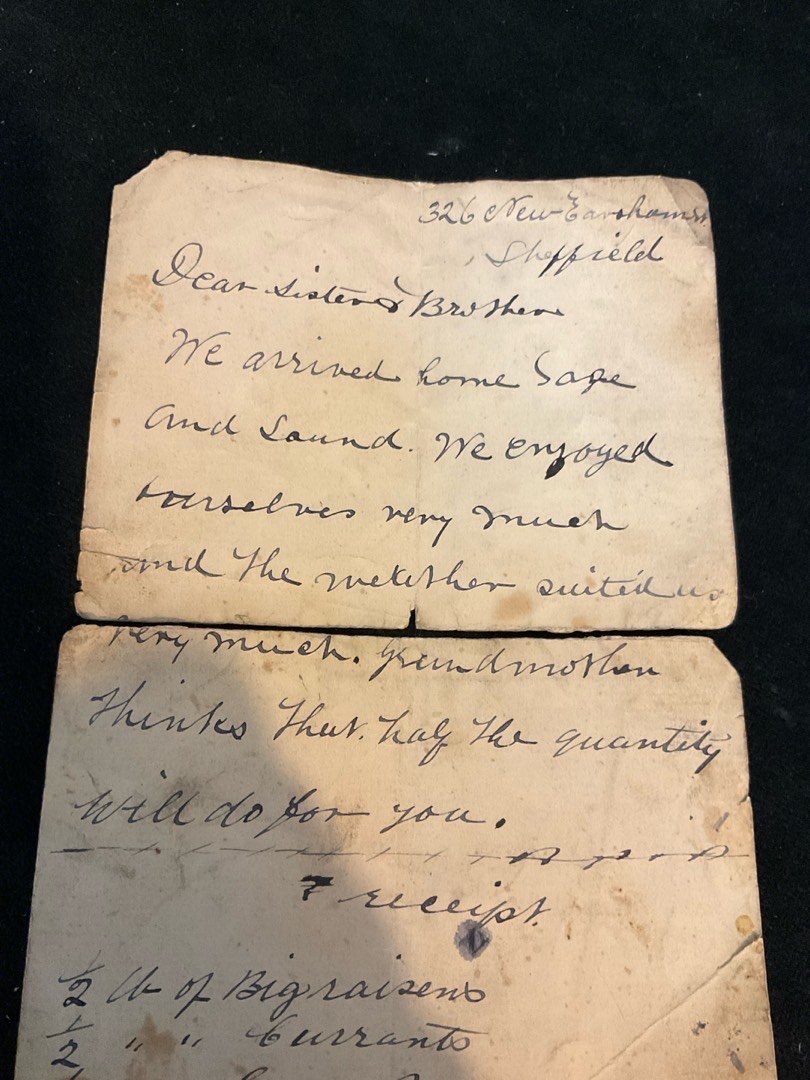 326 New Earsham St
Sheffield
Dear Sister & Brother
We arrived home Safe
and Sound. We enjoyed
ourselves very much
and the weather suited us
very much. Grandmother
thinks that half the quantity
will do for you.
receipt.
1/2 lb of Big raisens
1/2 " " Currants